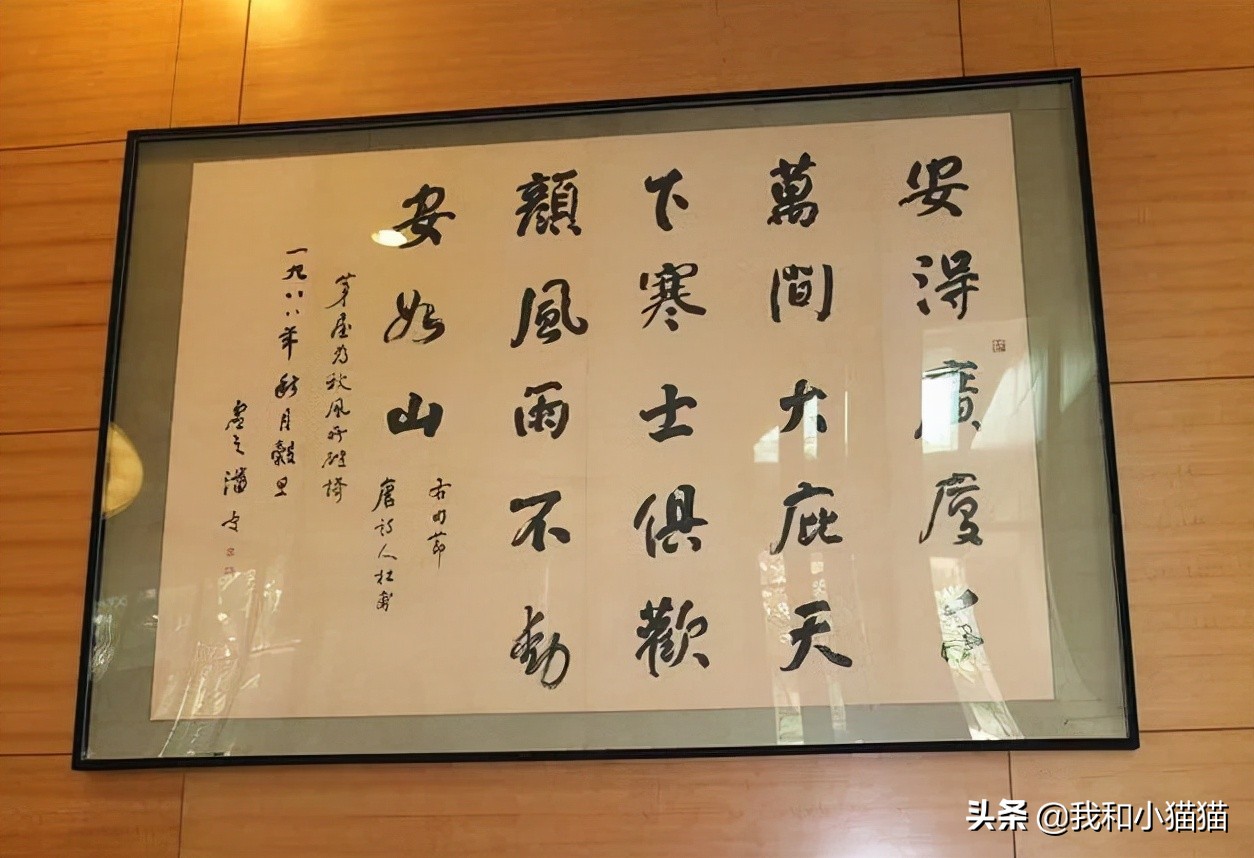 安得廣厦千
萬間大庇天
下寒士俱歡
顏風雨不動
安如山
右節
唐詩人杜甫
茅屋為秋風所破歌
一九八八年秋月穀旦
头条 @我和小猫猫